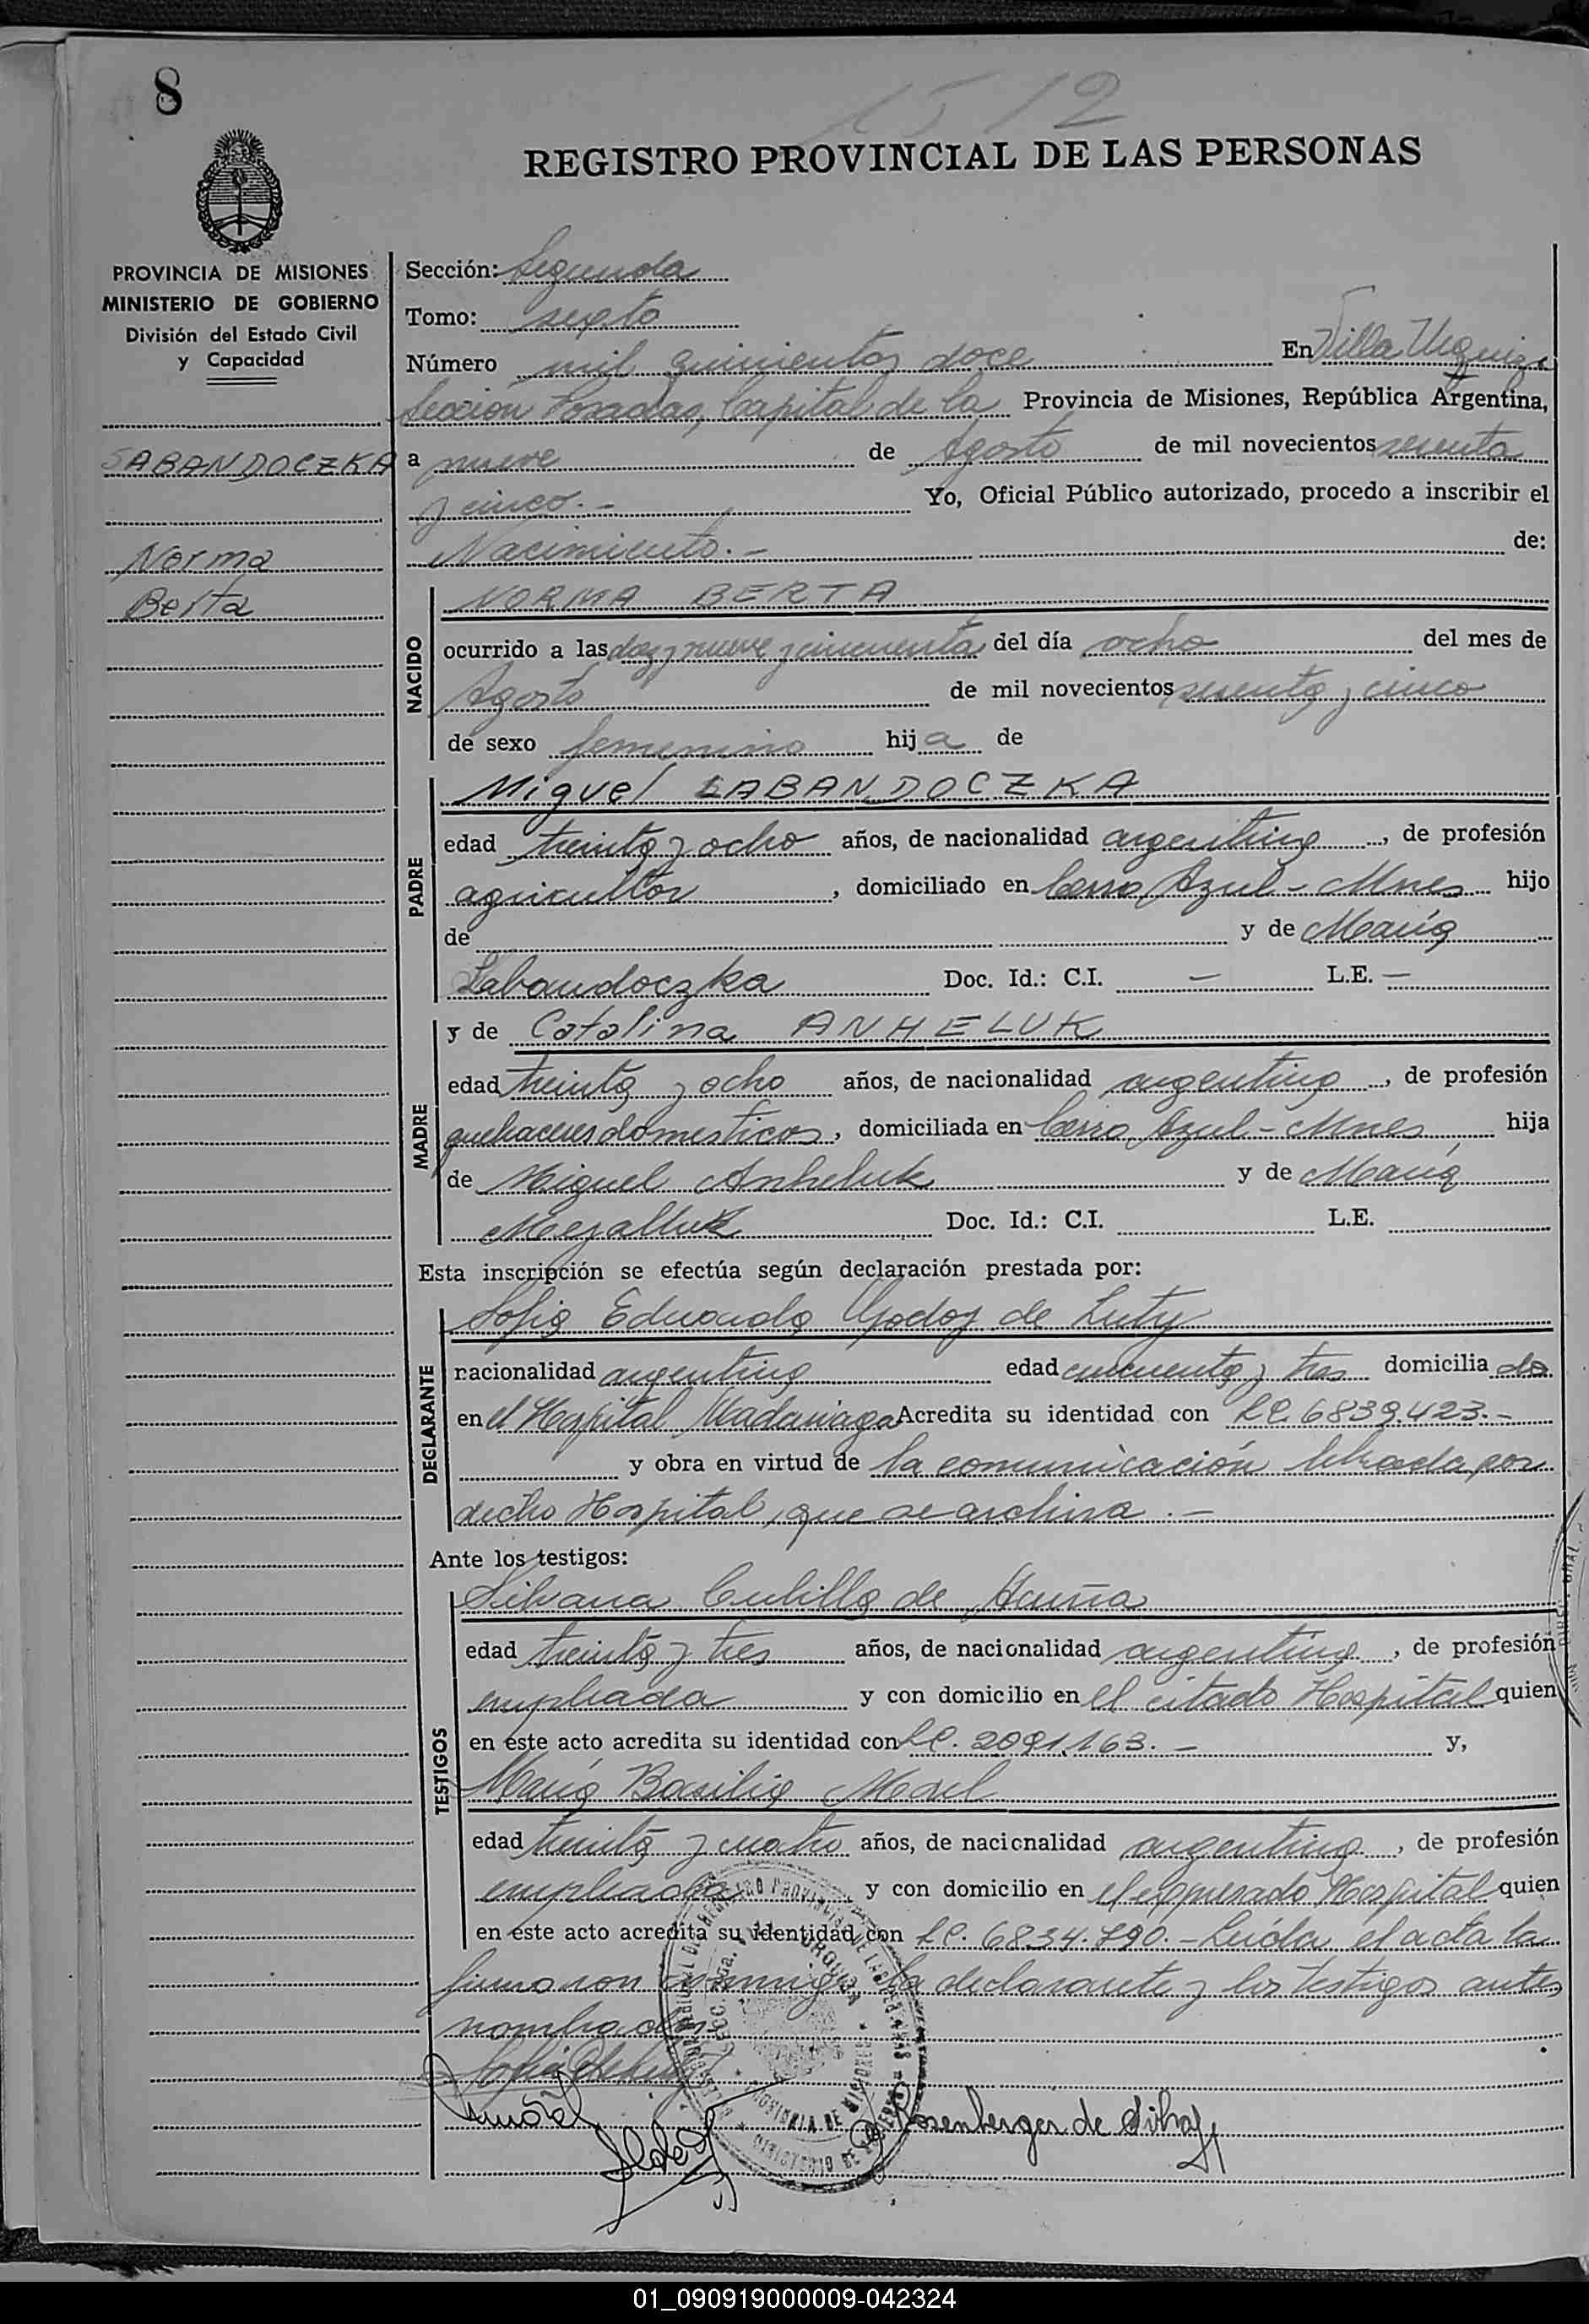 8
1512
REGISTRO PROVINCIAL DE LAS PERSONAS
PROVINCIA DE MISIONES
MINISTERIO DE GOBIERNO
División del Estado Civil
y Capacidad
SABANDOCZKA
Norma
Berta
Sección: Segunda
Tomo: sexto
Número mil quinientos doce En Villa Urquiza
Sección Posadas, Capital de la Provincia de Misiones, República Argentina,
a nueve de Agosto de mil novecientos sesenta
y cinco.- Yo, Oficial Público autorizado, procedo a inscribir el
Nacimiento.- de:
NACIDO
NORMA BERTA
ocurrido a las diez y nueve y cincuenta del día ocho del mes de
Agosto de mil novecientos sesenta y cinco
de sexo femenino hija de
PADRE
Miguel SABANDOCZKA
edad treinta y ocho años, de nacionalidad argentina, de profesión
agricultor, domiciliado en Cerro Azul - Mnes hijo
de y de María
Sabandoczka Doc. Id.: C.I. — L.E. —
MADRE
y de Catalina ANHELUK
edad treinta y ocho años, de nacionalidad argentina, de profesión
quehaceres domesticos, domiciliada en Cerro Azul - Mnes, hija
de Miguel Anheluk y de María
Doc. Id.: C.I. L.E.
Esta inscripción se efectúa según declaración prestada por:
DECLARANTE
Sofia Eduarda Godoy de Luty
nacionalidad argentina edad cincuenta y tres domiciliada
en el Hospital Madariaga Acredita su identidad con LC. 6839.423.-
y obra en virtud de la comunicación librada por
dicho Hospital, que se archiva.-
Ante los testigos:
TESTIGOS
Silvana Cubilla de Acuña
edad treinta y tres años, de nacionalidad argentina, de profesión
empleada y con domicilio en el citado Hospital quien
en este acto acredita su identidad con LC. 2091.163.- y,
María Basilia
edad treinta y cuatro años, de nacionalidad argentina, de profesión
empleada y con domicilio en el expresado Hospital quien
en este acto acredita su identidad con LC. 6834.790.- Leída el acta la
firmaron conmigo la declarante y los testigos antes
nombrados
Rosenberger de
01_090919000009-042324